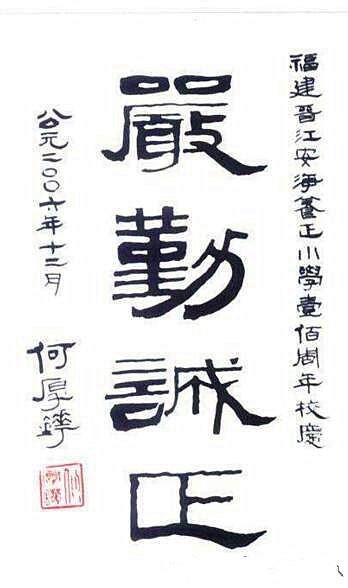 福建晋江安海養正小學壹佰周年校慶
嚴勤誠正
公元二〇〇六年十二月
何厚鏵